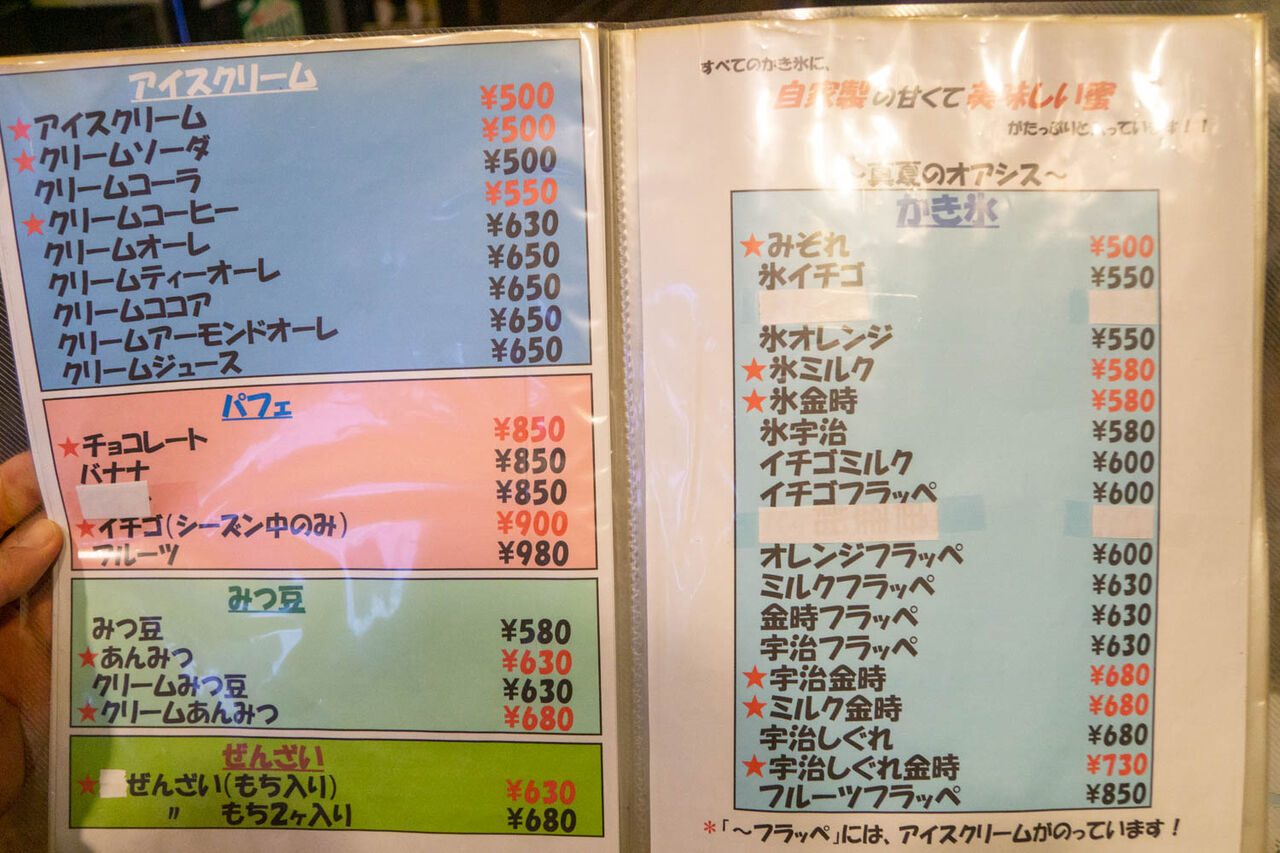 アイスクリーム
★アイスクリーム ¥500
★クリームソーダ ¥500
クリームコーラ ¥500
★クリームコーヒー ¥550
クリームオーレ ¥630
クリームティーオーレ ¥650
クリームココア ¥650
クリームアーモンドオーレ ¥650
クリームジュース ¥650
パフェ
★チョコレート ¥850
バナナ ¥850
¥850
★イチゴ(シーズン中のみ) ¥900
フルーツ ¥980
みつ豆
みつ豆 ¥580
★あんみつ ¥630
クリームみつ豆 ¥630
★クリームあんみつ ¥680
ぜんざい
★ぜんざい(もち入り) ¥630
〃 もち2ヶ入り ¥680
すべてのかき氷に、
自家製の甘くて美味しい蜜
がたっぷりと入っています!!
~真夏のオアシス~
かき氷
★みぞれ ¥500
氷イチゴ ¥550
氷オレンジ ¥550
★氷ミルク ¥580
★氷金時 ¥580
氷宇治 ¥580
イチゴミルク ¥600
イチゴフラッペ ¥600
オレンジフラッペ ¥600
ミルクフラッペ ¥630
金時フラッペ ¥630
宇治フラッペ ¥630
★宇治金時 ¥680
★ミルク金時 ¥680
宇治しぐれ ¥680
★宇治しぐれ金時 ¥730
フルーツフラッペ ¥850
*「~フラッペ」には、アイスクリームがのっています!